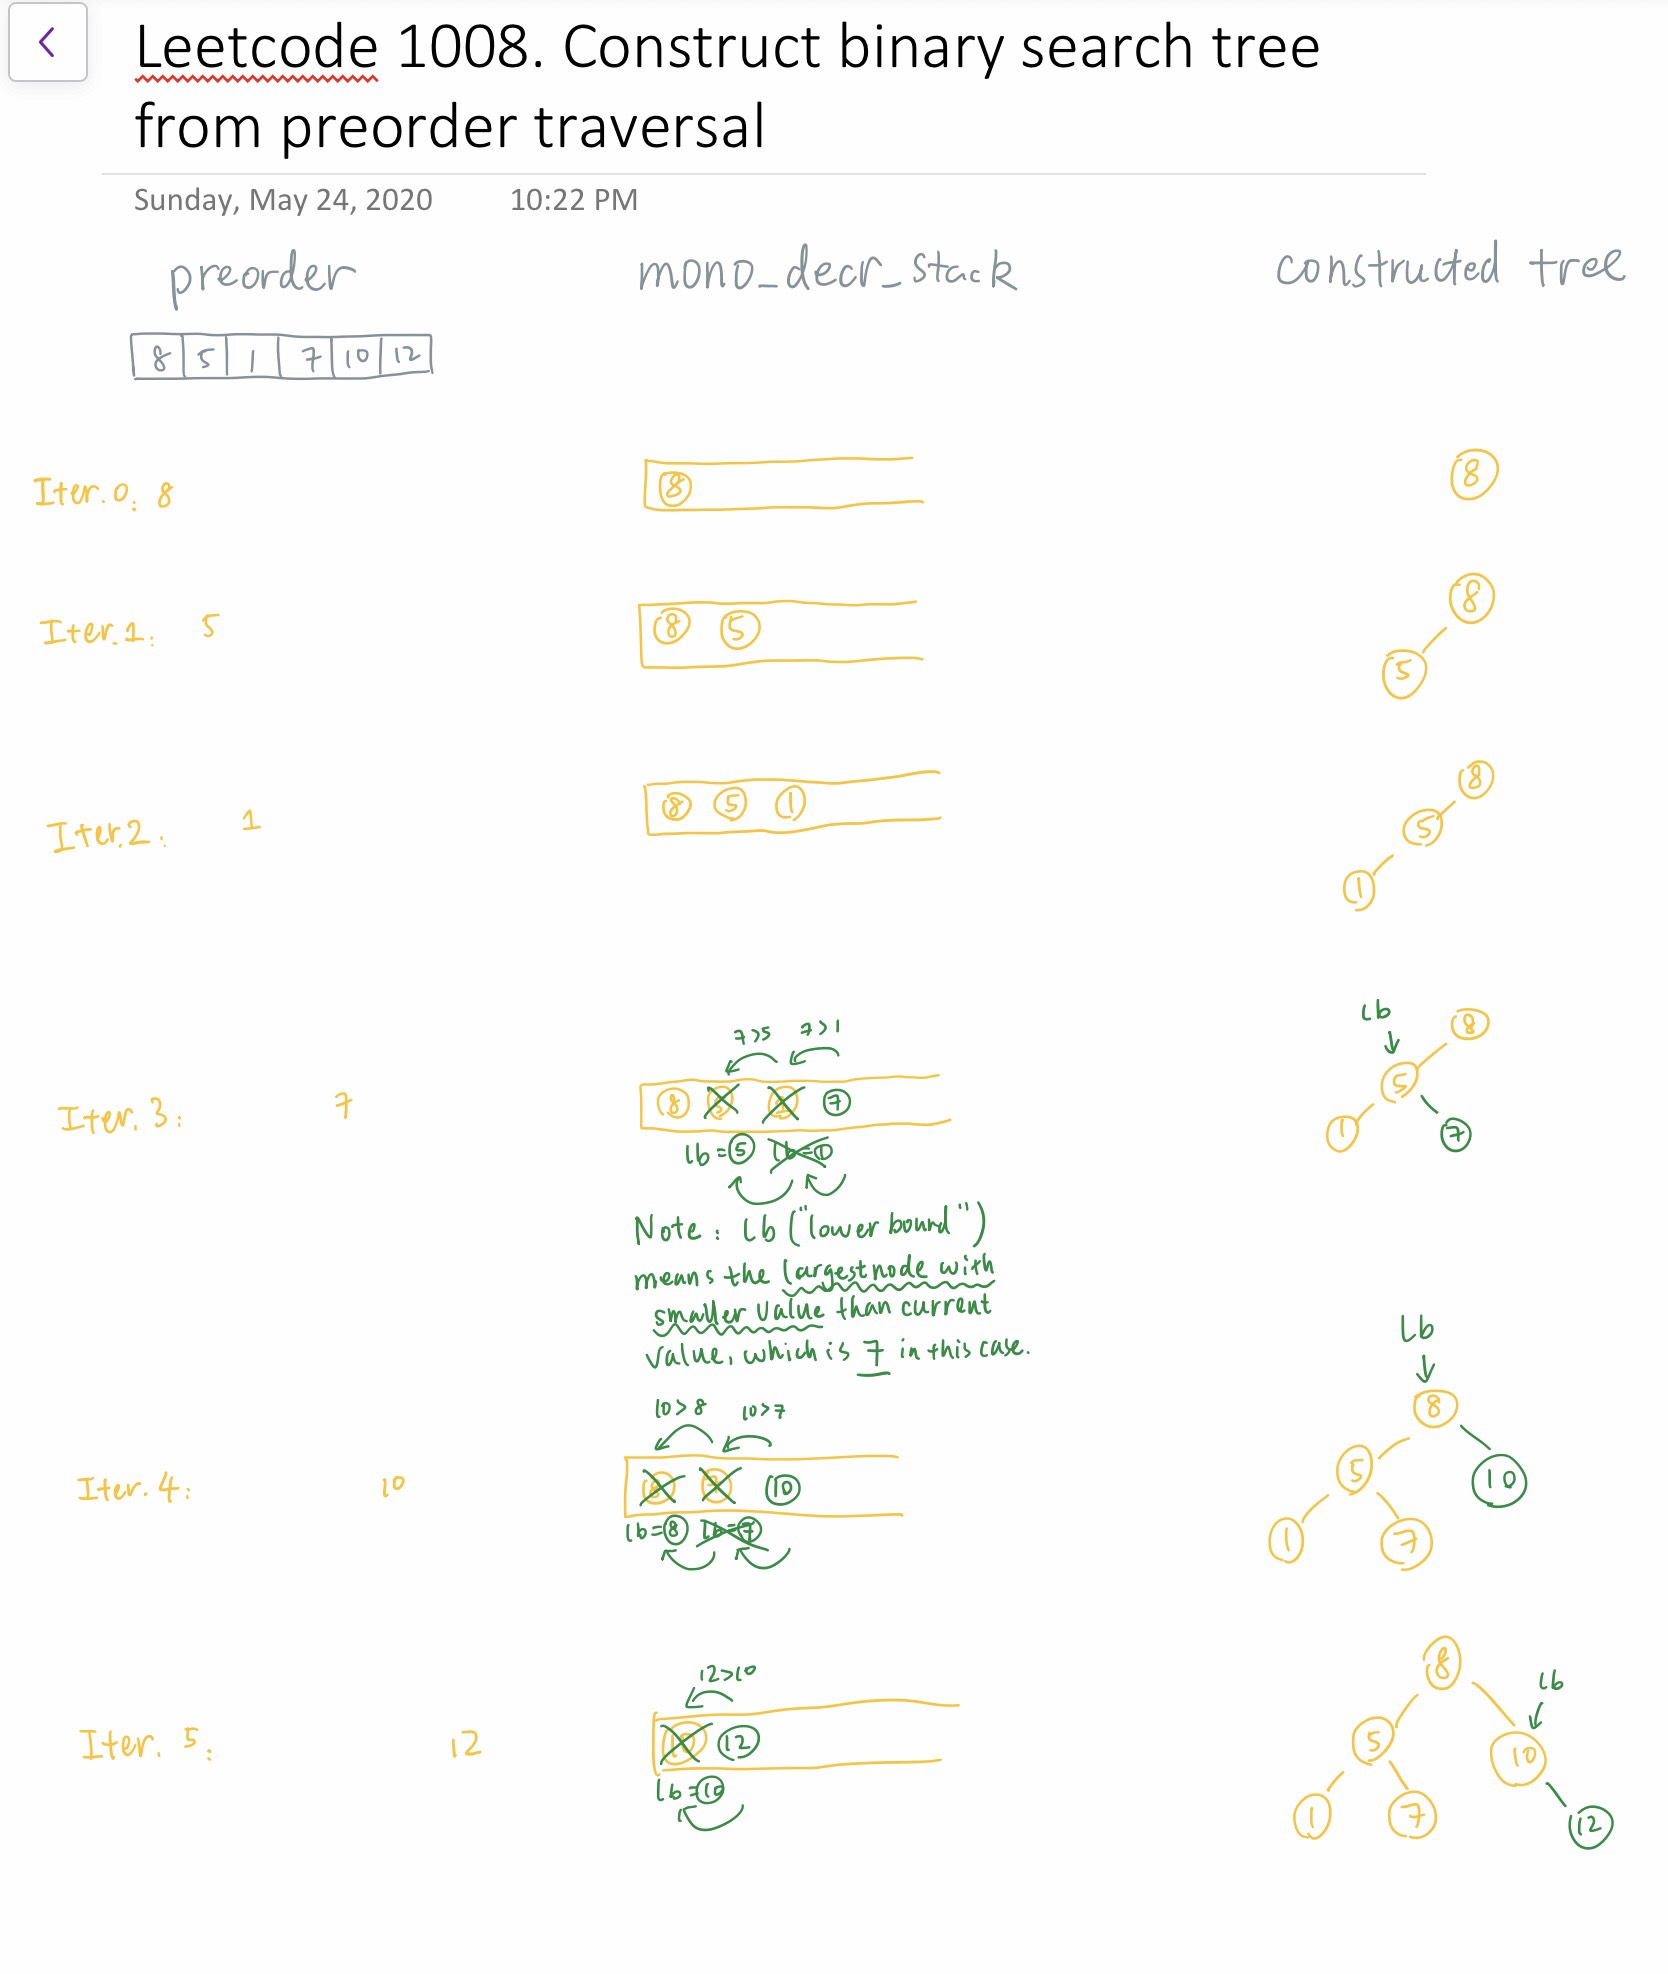 Leetcode 1008. Construct binary search tree
from preorder traversal
Sunday, May 24, 2020 10:22 PM
preorder mono_decr_stack constructed tree
8 5 1 7 10 12
Iter.0: 8 8 8
Iter.1: 5 8 5 8
5
Iter.2: 1 8 5 1 8
5
1
7>5 7>1 lb
8
Iter. 3: 7 8 5 1 7 5
lb=5 lb=1 1 7
Note: lb ("lower bound")
means the largest node with
smaller value than current
value, which is 7 in this case.
lb
10>8 10>7 8
Iter. 4: 10 8 7 10 5 10
lb=8 lb=7 1 7
12>10 8 lb
Iter. 5: 12 10 12 5 10
lb=10 1 7 12